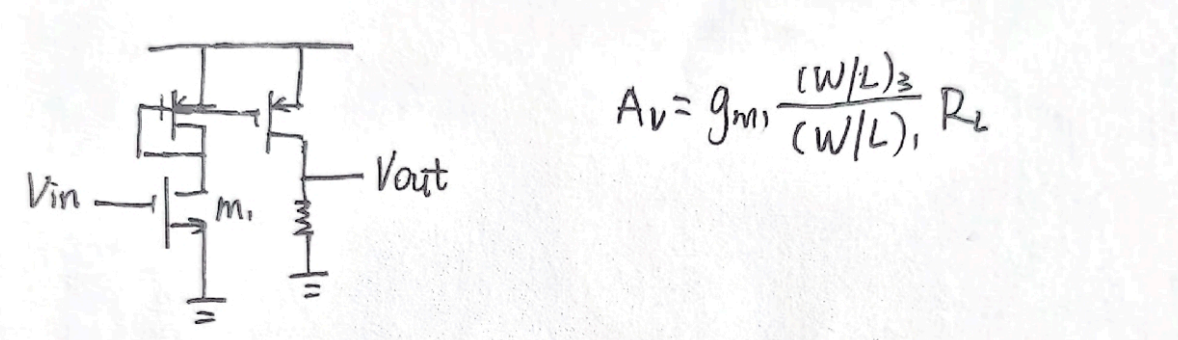 Vin
m₁
Vout
A_v = g_m₁ (W/L)₃ / (W/L)₁ R_L